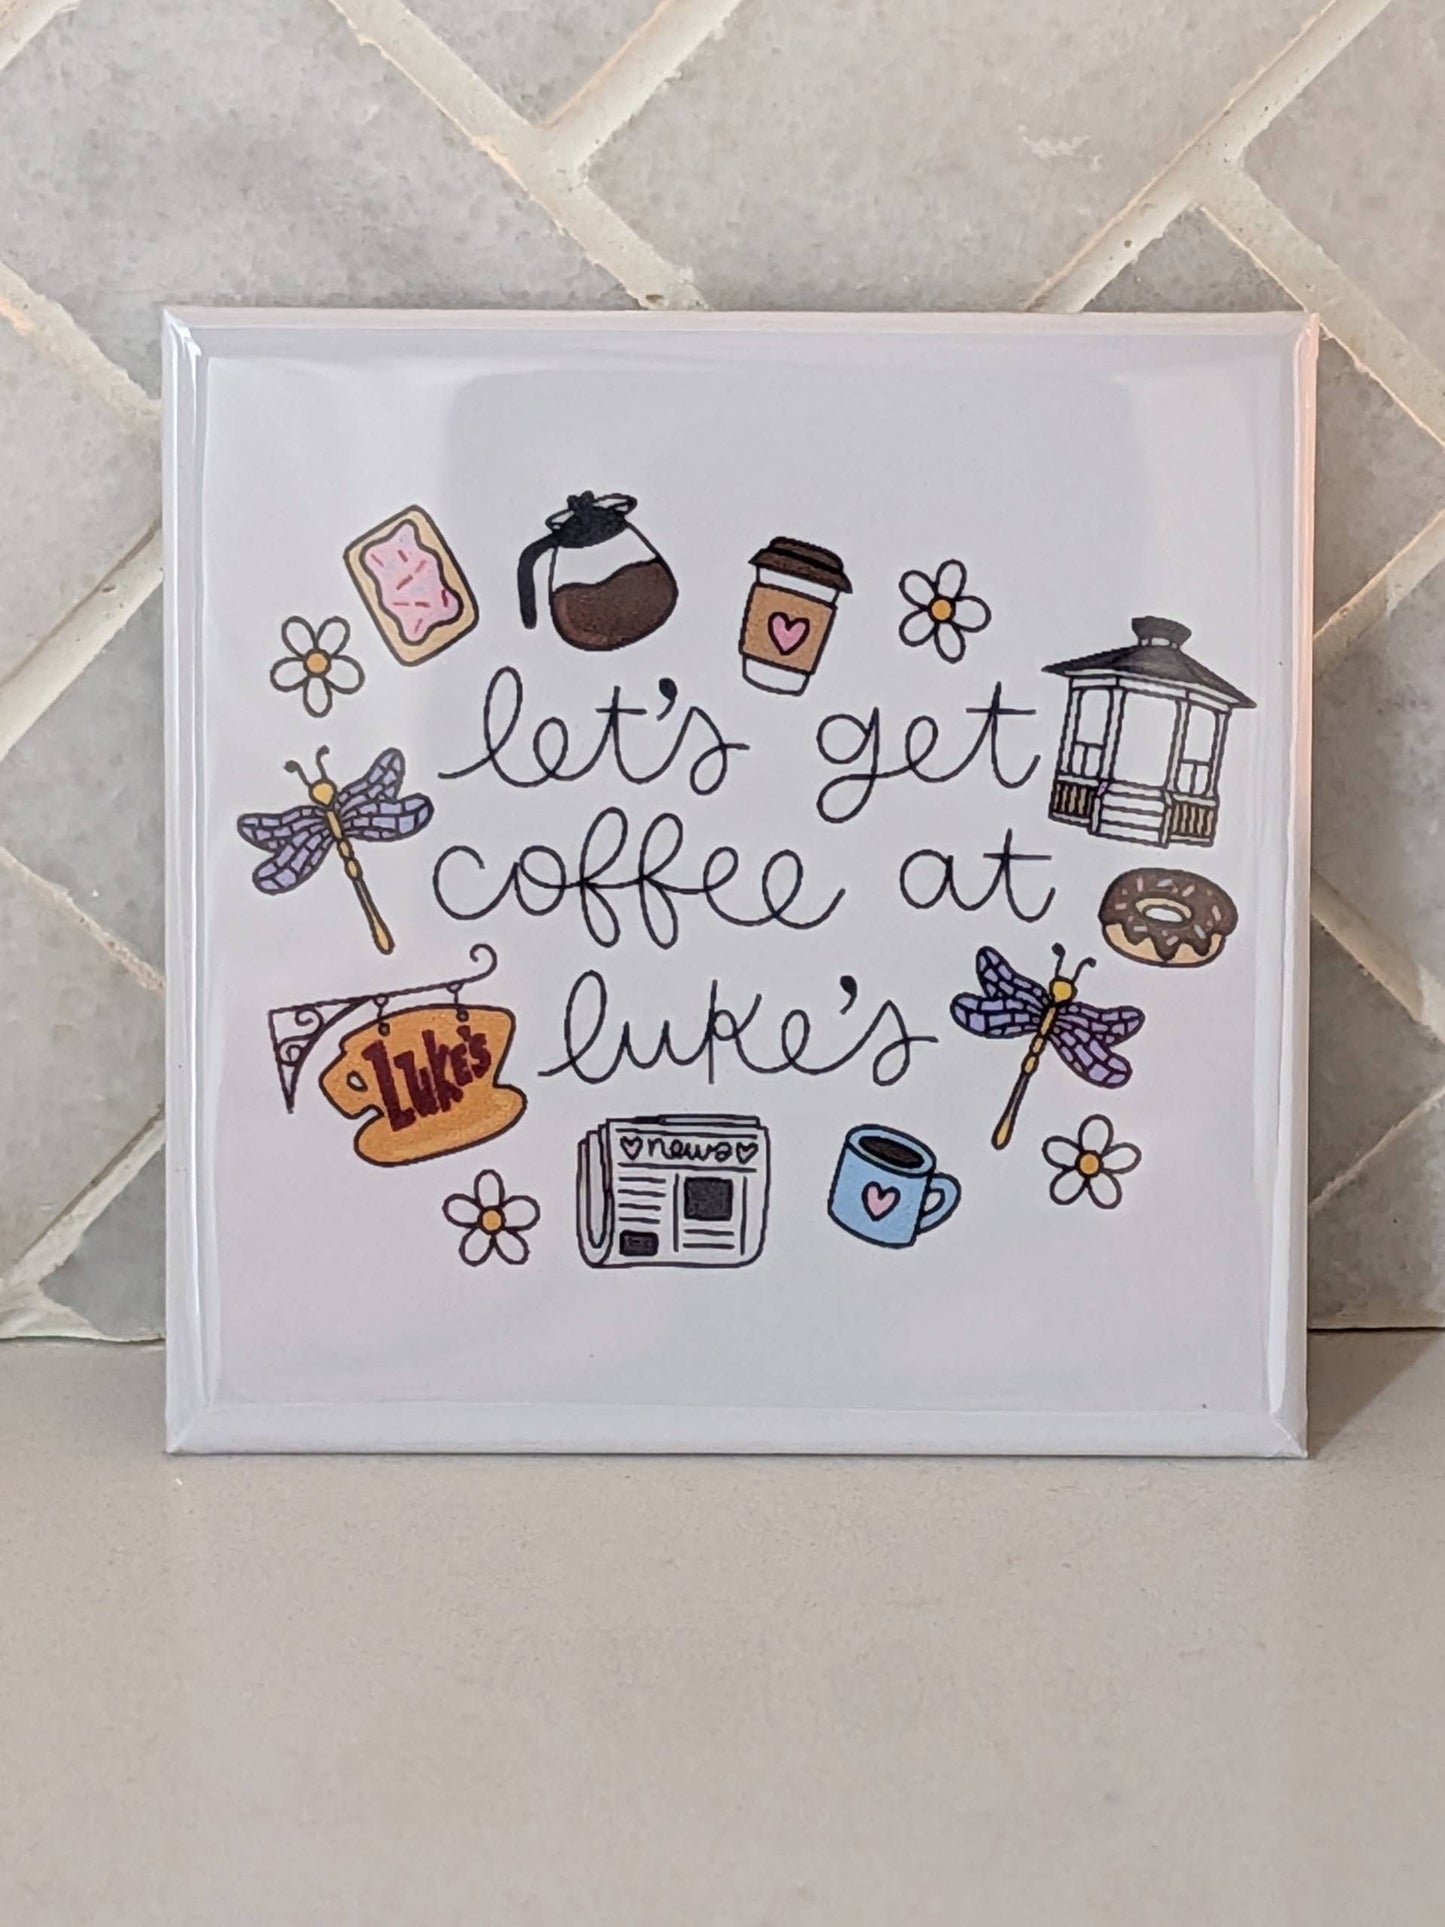 let's get
coffee at
luke's
Luke's
news